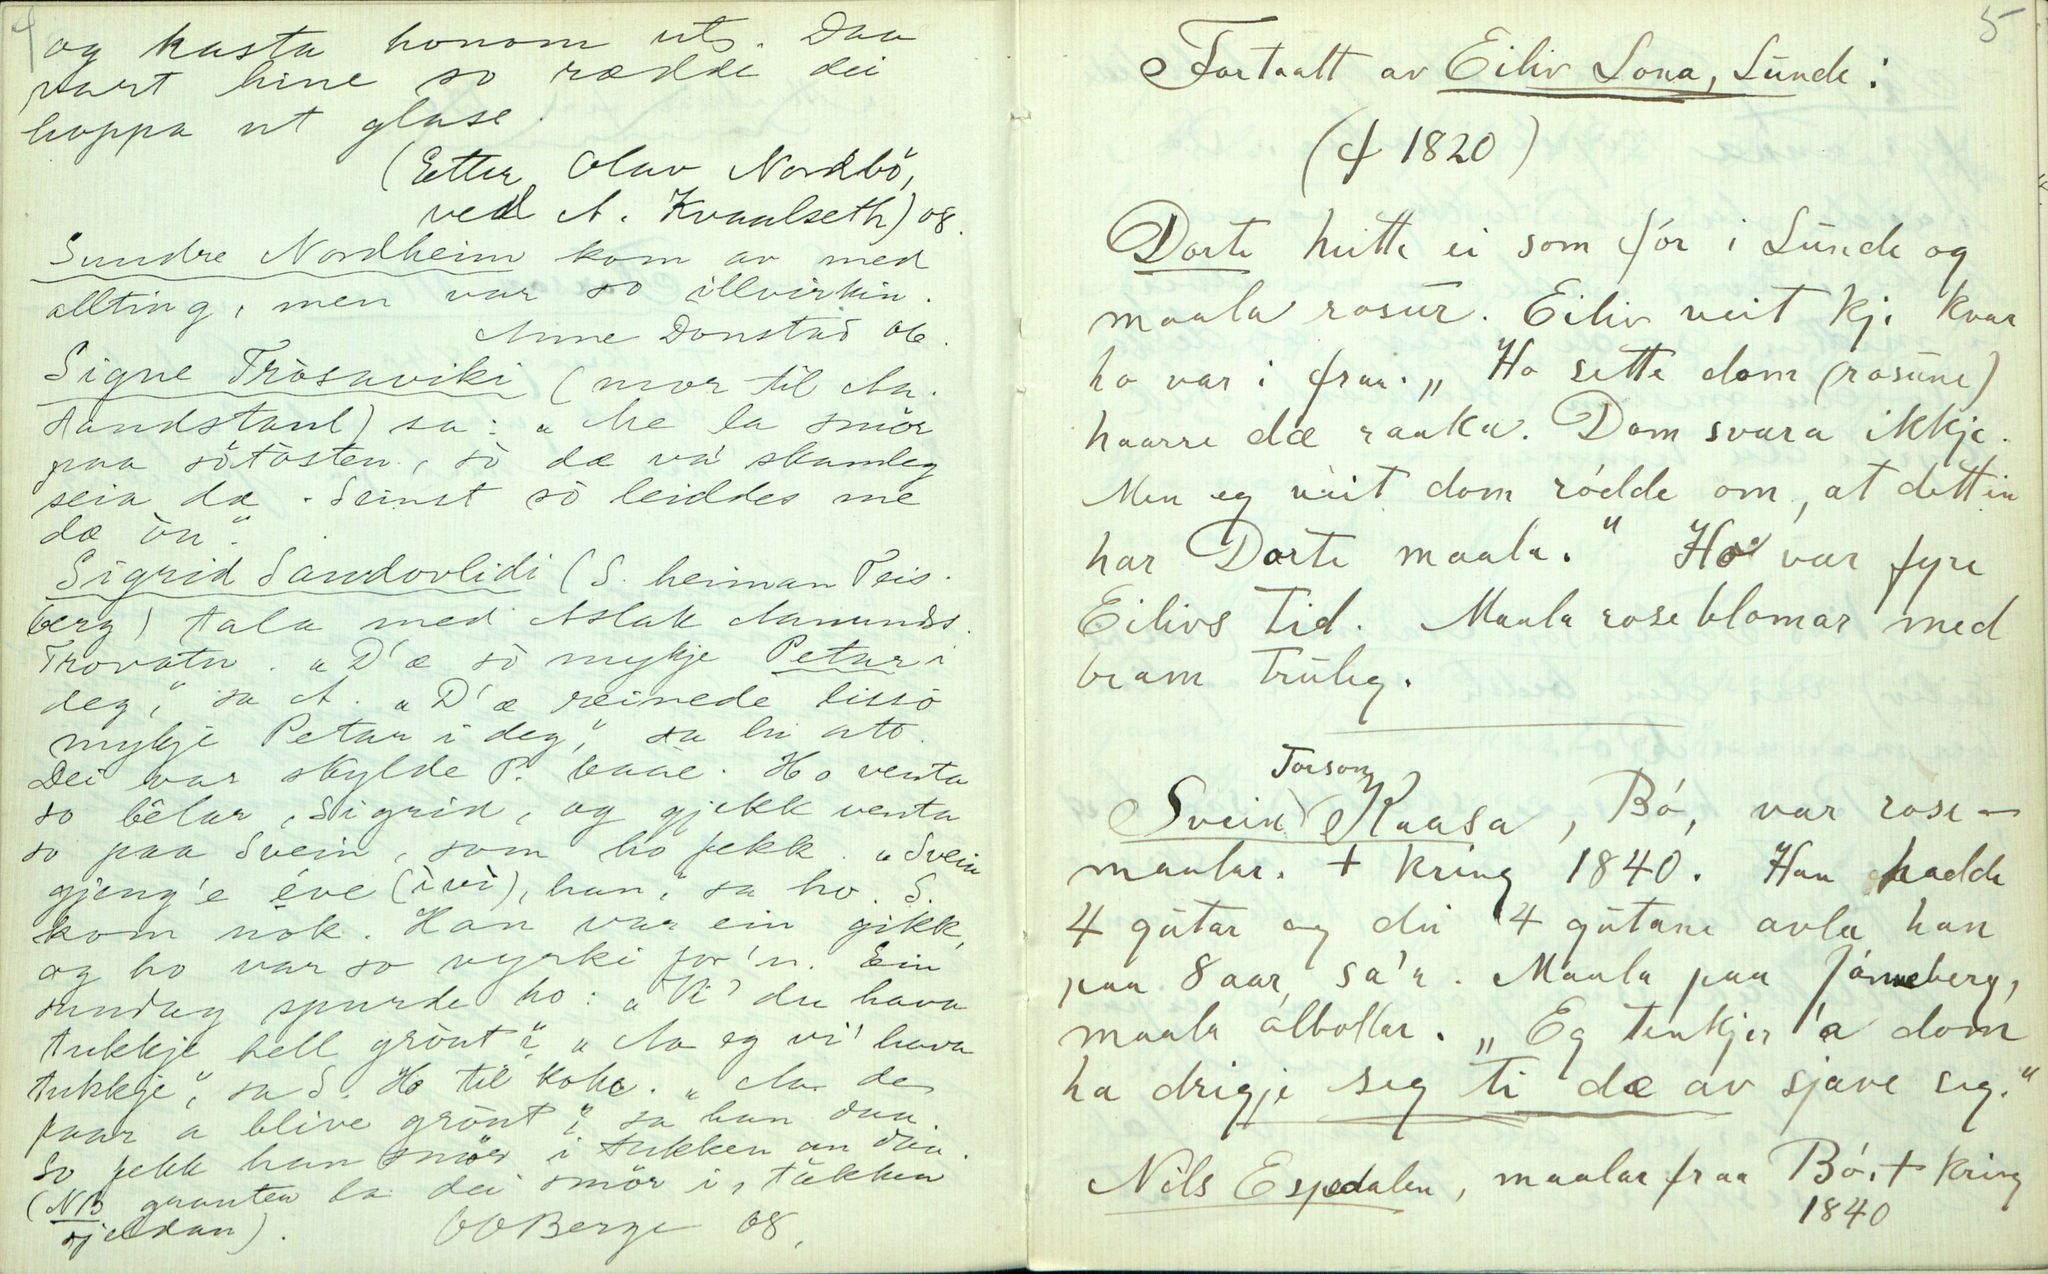 4
og kasta honom ut. Daa
vart hine so rædde dei
hoppa ut glase.
(Etter Olav Nordbö,
ved A. Kvaalseth) 08.
Sundre Nordheim kom av med
allting, men var so illvirkin.
Anne Donstad 06.
Signe Tròsaviki (mor til Aa.
Sandstaul) sa: „Me la smör
paa sötosten, sò dæ va' skamleg
seia dæ. Seinst sò leiddes me
dæ òn".
Sigrid Sandovlidi (S. heiman Teis-
berg) tala med Aslak Aamundss.
Trovatn. „D'æ sò mykje Petar i
deg," sa A. „D'æ reinede lissò
mykje Petar i deg," sa ho att.
Dei var skylde P. baae. Ho venta
so bêlar, Sigrid, og gjekk venta
so paa Svein, som ho fekk. „Svein
gjeng'e éve (ìvì), han," sa ho. S.
kom nòk. Han var ein gikk,
og ho var so vyrki for'n. Ein
sundag spurde ho: „Vi' du hava
tukkje hell grönt?" „Aa eg vi' hava
tukkje," sa S. Ho til koke. „Aa de
faar a blive grönt," sa han daa.
So fekk han smör i tukken an dei.
(NB grauten la dei smör i, tukken
sjeldan). OOBerge 08,
5
Fortaalt av Eiliv Lona, Lunde:
(f 1820)
Dorte heitte ei som fór i Lunde og
maala rosur. Eiliv veit kje kvar
ho var i fraa. „Ho sette dom (rosune)
haarre dæ raaka. Dom svara ikkje.
Men eg veit dom rødde om, at dette
har Dorte maala." Ho var fyre
Eilivs tid. Maala roseblomar med
bram truleg.
Torson
Svein Raasa, Bó, var rose-
maalar. + kring 1840. Han hadde
4 gutar og dei 4 gutane avla han
paa 8 aar, sa'n. Maala paa Jónneberg,
maala ólbollar. „Eg tenkjer 'a dom
ha drigje seg ti dæ av sjave seg."
Nils Espedalen, maalar fraa Bó. + kring
1840